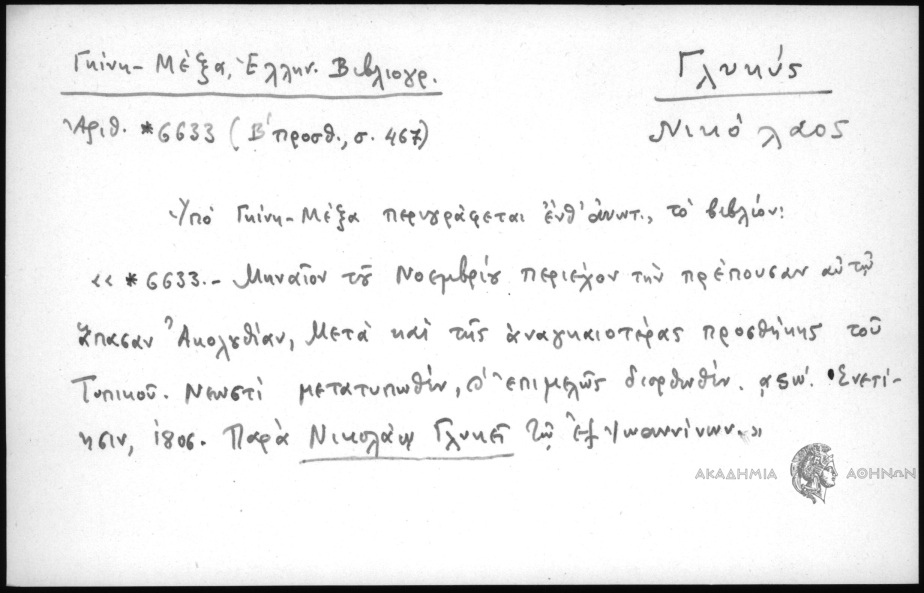 Γκίνη-Μέξα, Ἑλλην. Βιβλιογρ.
Γλυκύς
Ἀριθ. *6633 (Β΄ προσθ., σ. 467)
Νικόλαος
Ὑπὸ Γκίνη-Μέξα περιγράφεται ἔνθ' ἀνωτ., τὸ βιβλίον:
«*6633.- Μηναῖον τοῦ Νοεμβρίου περιέχον τὴν πρέπουσαν αὐτῷ
ἅπασαν Ἀκολουθίαν, Μετὰ καὶ τῆς ἀναγκαιοτέρας προσθήκης τοῦ
Τυπικοῦ. Νεωστὶ μετατυπωθὲν, ἐπιμελῶς διορθωθὲν. Ἐνετί-
ησιν, 1806. Παρὰ Νικολάῳ Γλυκεῖ Τῷ ἐξ Ἰωαννίνων.»
ΑΚΑΔΗΜΙΑ ΑΘΗΝΩΝ